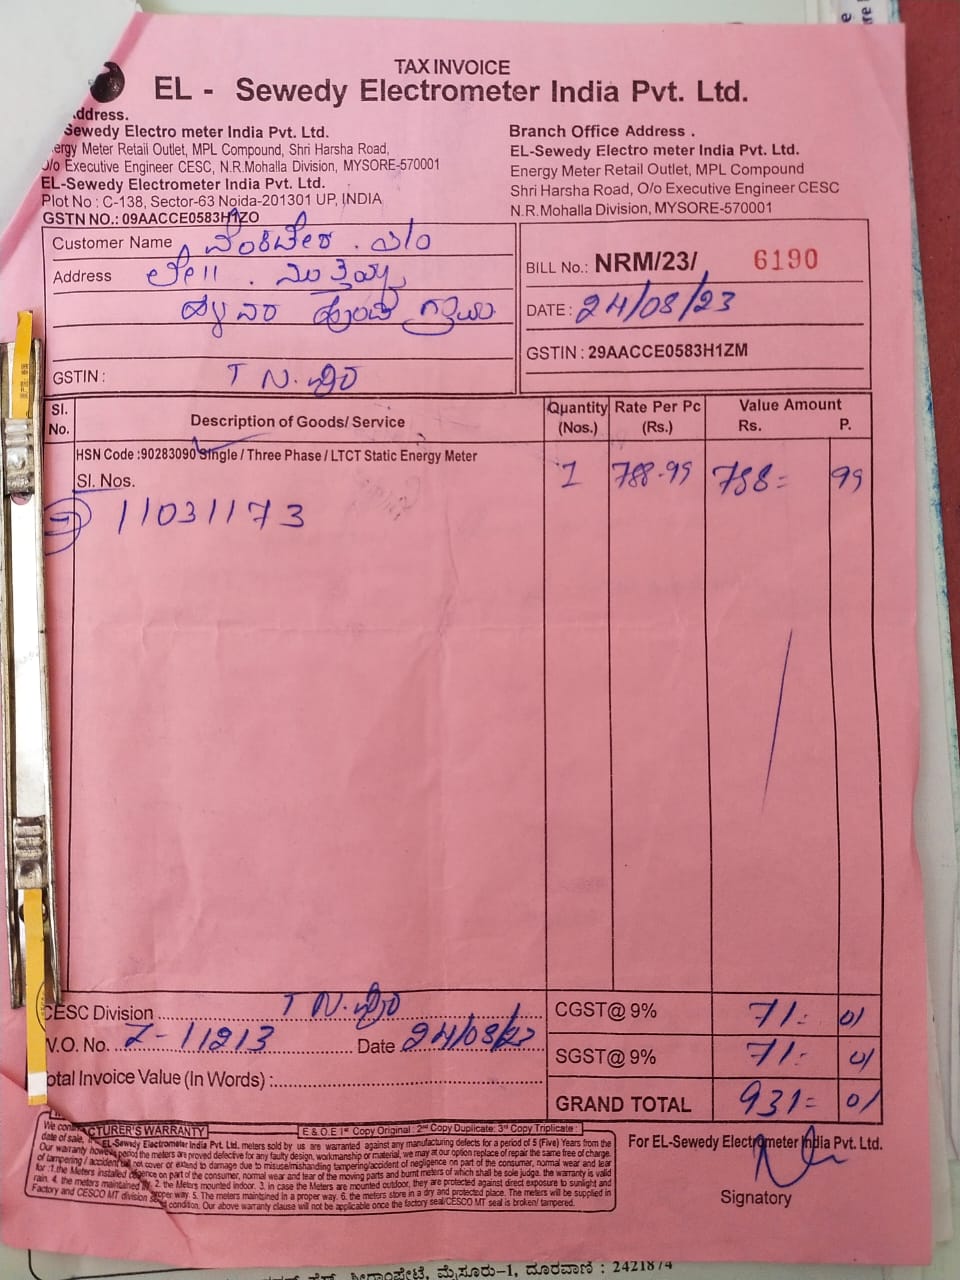 TAX INVOICE
EL - Sewedy Electrometer India Pvt. Ltd.
ddress.
Sewedy Electro meter India Pvt. Ltd.
ergy Meter Retail Outlet, MPL Compound, Shri Harsha Road,
/o Executive Engineer CESC, N.R.Mohalla Division, MYSORE-570001
EL-Sewedy Electrometer India Pvt. Ltd.
Plot No : C-138, Sector-63 Noida-201301 UP, INDIA
GSTN NO.: 09AACCE0583H1ZO
Branch Office Address .
EL-Sewedy Electro meter India Pvt. Ltd.
Energy Meter Retail Outlet, MPL Compound
Shri Harsha Road, O/o Executive Engineer CESC
N.R.Mohalla Division, MYSORE-570001
Customer Name
Address ಲೇ||
GSTIN : T N.ಪುರ
BILL No.: NRM/23/ 6190
DATE : 24/08/23
GSTIN : 29AACCE0583H1ZM
Sl. No. Description of Goods/ Service Quantity (Nos.) Rate Per Pc (Rs.) Value Amount Rs. P.
HSN Code :90283090 Single / Three Phase / LTCT Static Energy Meter
Sl. Nos. 1 788-99 788= 99
11031173
CESC Division T N.ಪುರ
V.O. No. Z-11213 Date 24/08/23
otal Invoice Value (In Words) :
CGST@ 9% 71= 01
SGST@ 9% 71= 01
GRAND TOTAL 931= 01
CTURER'S WARRANTY E & O E 1st Copy Original : 2nd Copy Duplicate: 3rd Copy Triplicate :
date of sale, EL-Sewedy Electrometer India Pvt. Ltd. meters sold by us are warranted against any manufacturing defects for a period of 5 (Five) Years from the
Our warranty period the meters are proved defective for any faulty design, workmanship or material, we may at our option replace of repair the same free of charge.
of tampering / accident not cover or extend to damage due to misuse/mishandling tampering/accident of negligence on part of the consumer, normal wear and tear
for :1.the Meters installed on part of the consumer, normal wear and tear of the moving parts and burnt meters of which shall be sole judge. the warranty is valid
rain. 4. the meters maintained 2. the Meters mounted indoor. 3. in case the Meters are mounted outdoor, they are protected against direct exposure to sunlight and
Factory and CESCO MT division way. 5. The meters maintained in a proper way. 6. the meters store in a dry and protected place. The meters will be supplied in
condition. Our above warranty clause will not be applicable once the factory seal/CESCO MT seal is broken/ tampered.
For EL-Sewedy Electrometer India Pvt. Ltd.
Signatory
ಮೈಸೂರು-1, ದೂರವಾಣಿ : 2421874